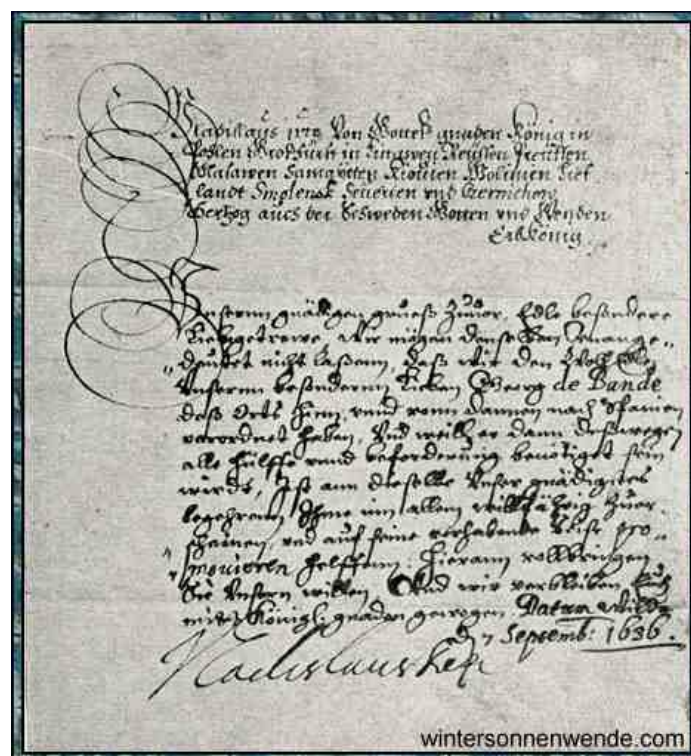 Vladislaus von Gottes gnaden König in
Pohlen Großfürst in Reüssen Preüssen
Masawen Samoytten Kiouien Wolinien Lief
landt Smolensk Seuerien vnd Czernichow
Hertzog auch der Schweden Gotten vnd Wenden
Erbkönig.
Vnserm gnädigen grueß zuuor, Edle besondere
Liebgetrewe, Wir mögen denselben
nicht laßenn, daß wir den
Vnserem besonderenn Lieben Georg de Bande
daß Orts hienn vnnd vonn dannen nach Spanien
verordnet haben, Vnd weill er dann deßwegen
alle hülffe vnnd beforderung benötiget sein
wirdt, Ist ann dieselbe Vnser gnädigstes
begehrenn, Ihme inn allem willfährig zuer„
scheinen, vnd auf seine vorhabende Reise pro„
mouieren helffenn. Hierann vollbringen
Sie Vnsern willen, Vnd wir verbleiben Euch
mit Königl: gnaden gewogen. Datum
7 Septemb: 1636.
Vladislaus Rex
wintersonnenwende.com